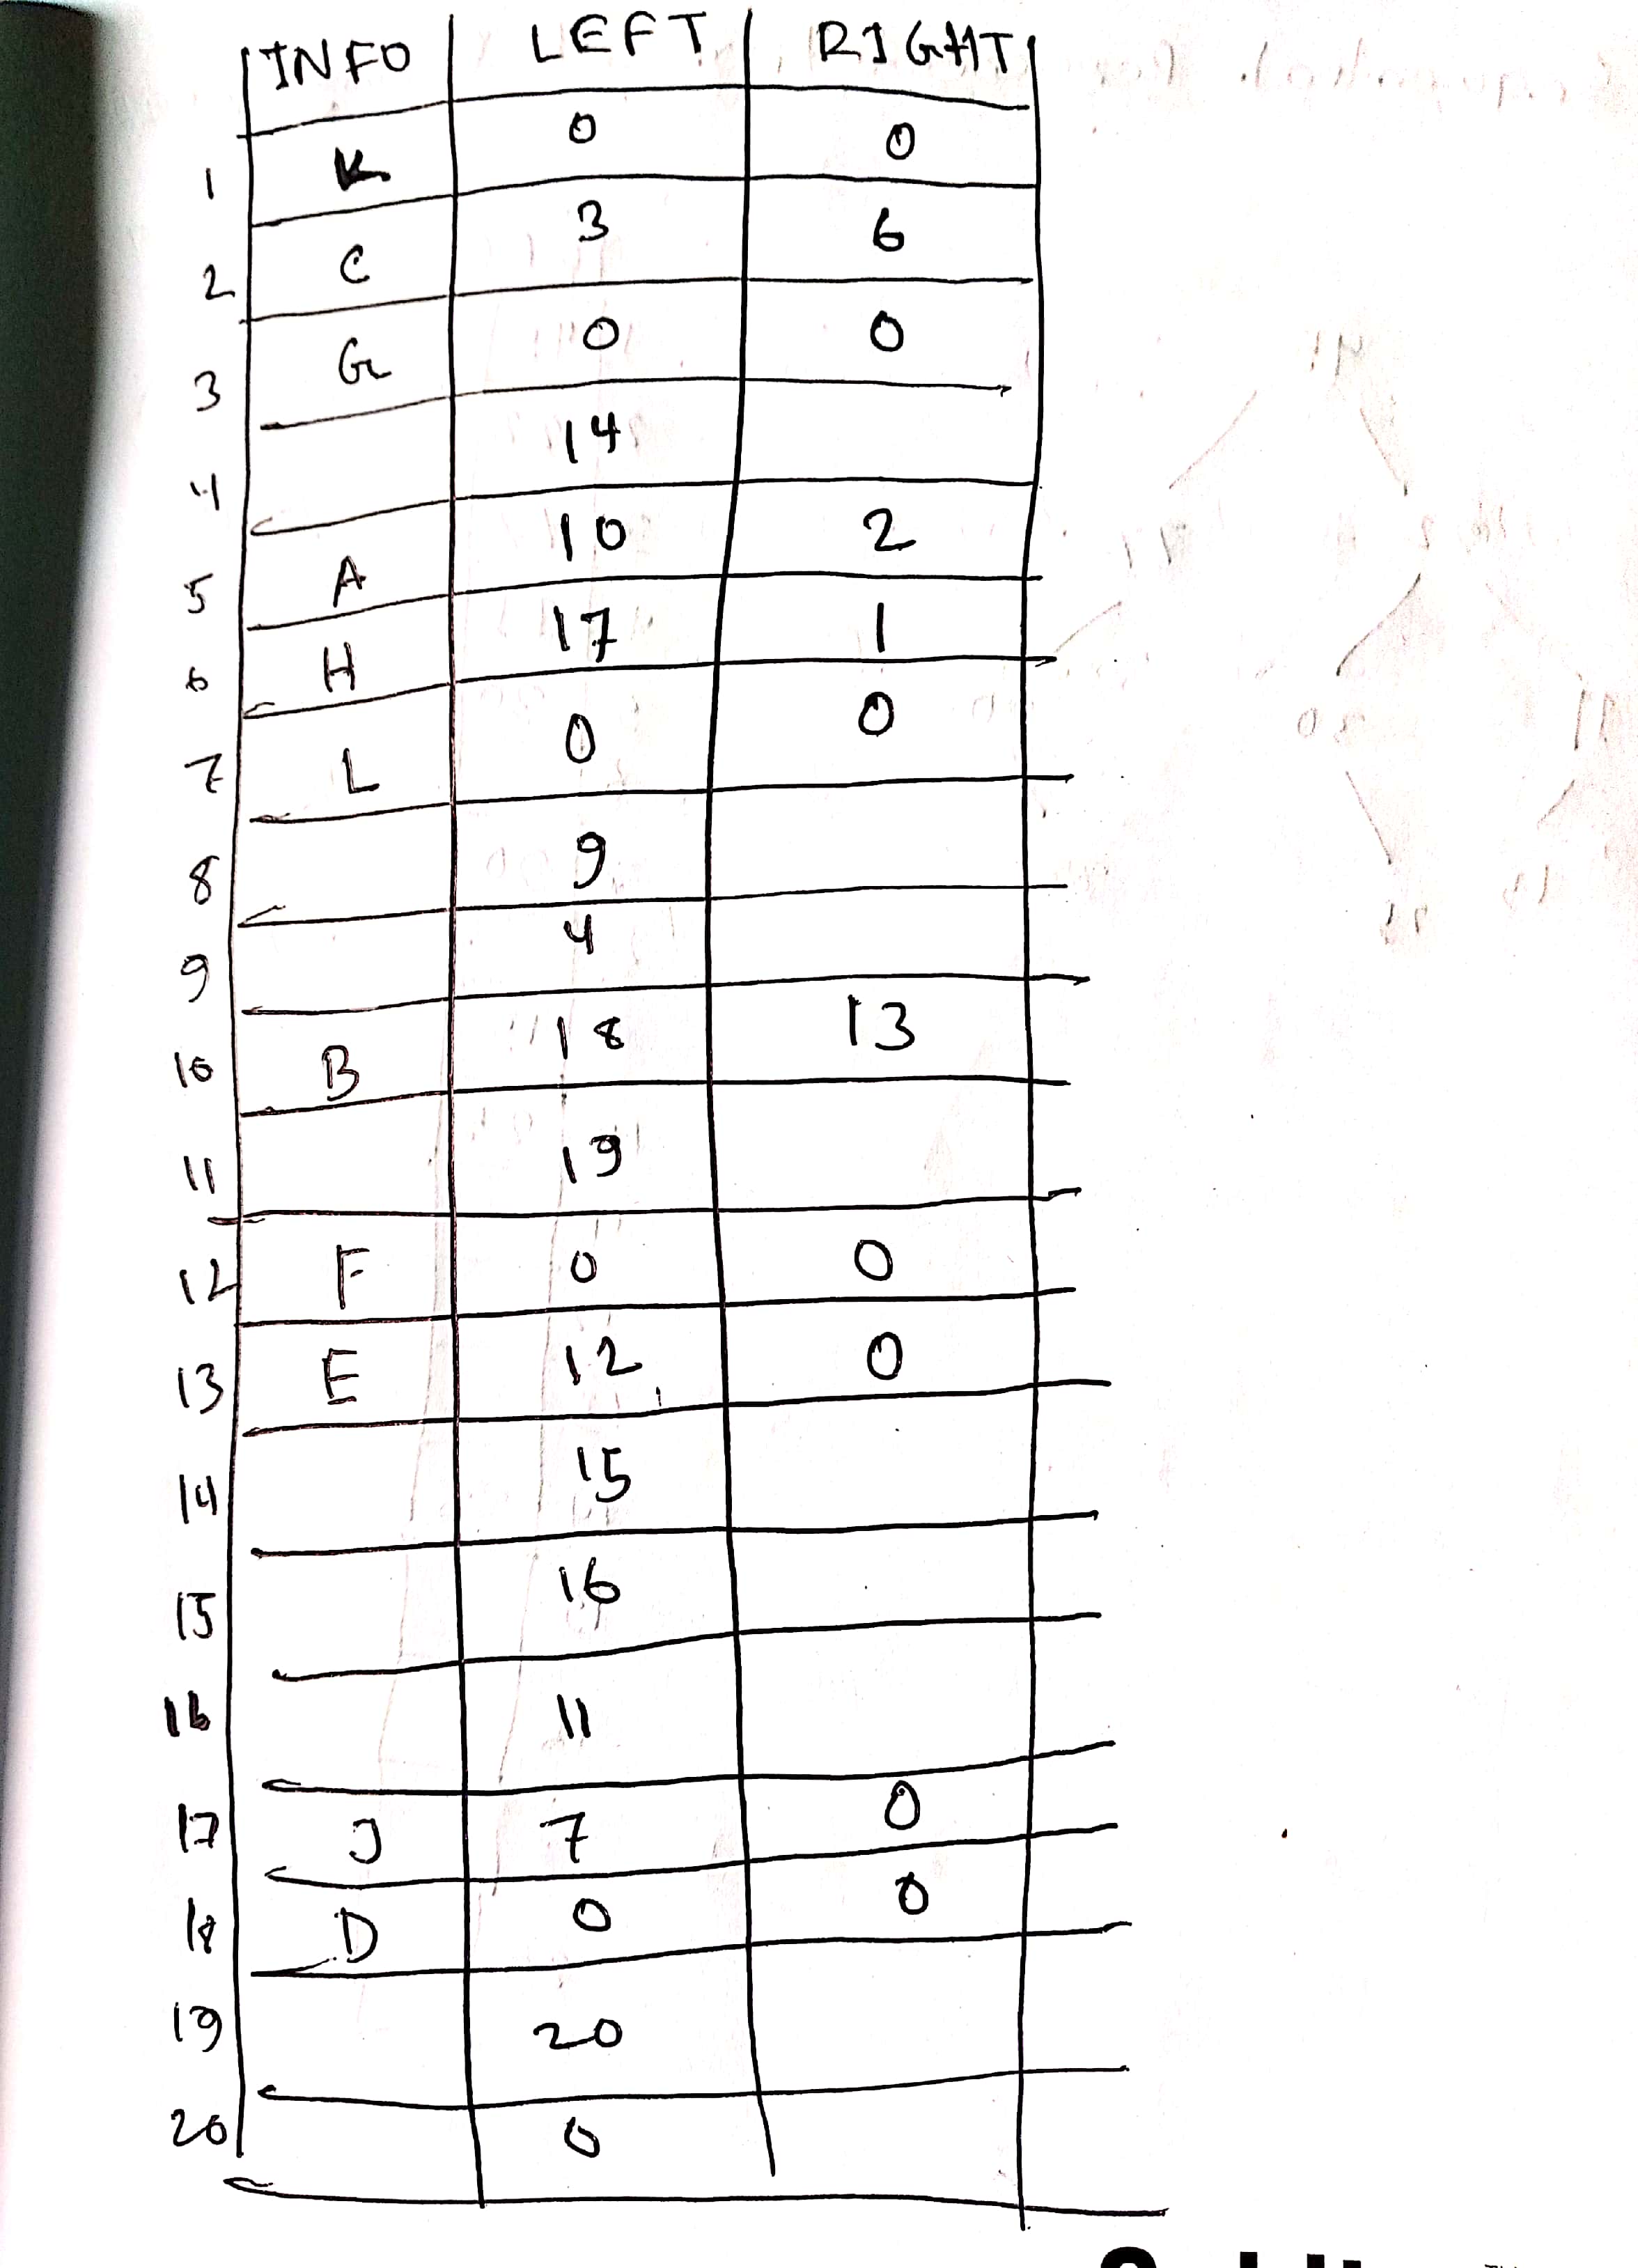 INFO LEFT RIGHT
1 K 0 0
2 C 3 6
3 G 0 0
4 14
5 A 10 2
6 H 17 1
7 L 0 0
8 9
9 4
10 B 18 13
11 19
12 F 0 0
13 E 12 0
14 15
15 16
16 11
17 J 7 0
18 D 0 0
19 20
20 0